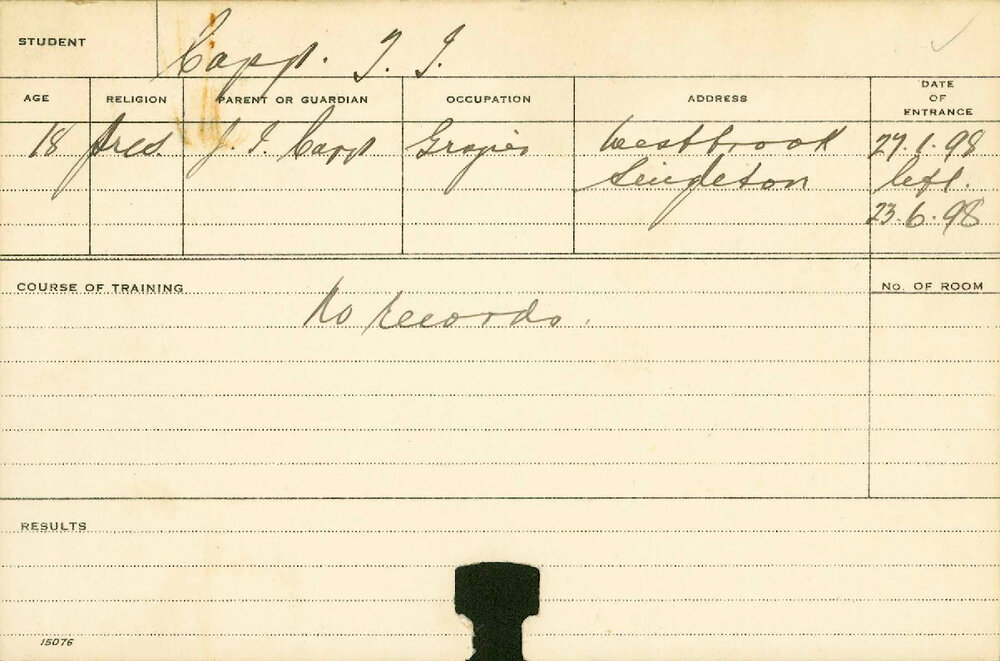 STUDENT Capp. T. J.
AGE RELIGION PARENT OR GUARDIAN OCCUPATION ADDRESS DATE OF ENTRANCE
18 Pres. J. I. Capp Grazier Westbrook 27.1.98
Singleton left.
23.6.98
COURSE OF TRAINING No. OF ROOM
No records.
RESULTS
15076